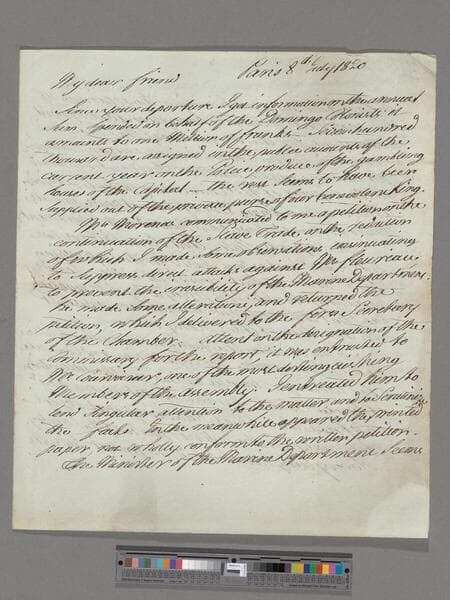 Paris 8th July 1820
My dear friend
Since your departure I got information on the annual
Sum spended on behalf of the Domingo Colonists it
amounts to one Million of franks — Seven hundred
thousand are assigned in the public accounts of the
current year on the produce of the gambling
houses of the Capital — the rest seems to have been
supplied out of the private purse of our benevolent King.
Mr Morenas communicated to me a petition on the
continuation of the Slave Trade, on the redaction
of which I made some observations
to suppress direct attacks against Mr fleureau
to prevent the irascibility of the Marine Department.
he made some alterations, and returned the
petition, which I delivered to the first Secretary
of the Chamber. attent on the designation of the
Commissary for the report, it was entrusted to
Mr one of the most distinguishing
Members of the assembly. I entreated him to
lend singular attention to the matter and
the facts. In the meanwhile appeared the printed
paper not wholly conform to the written petition —
The Minister of the Marine Department seems